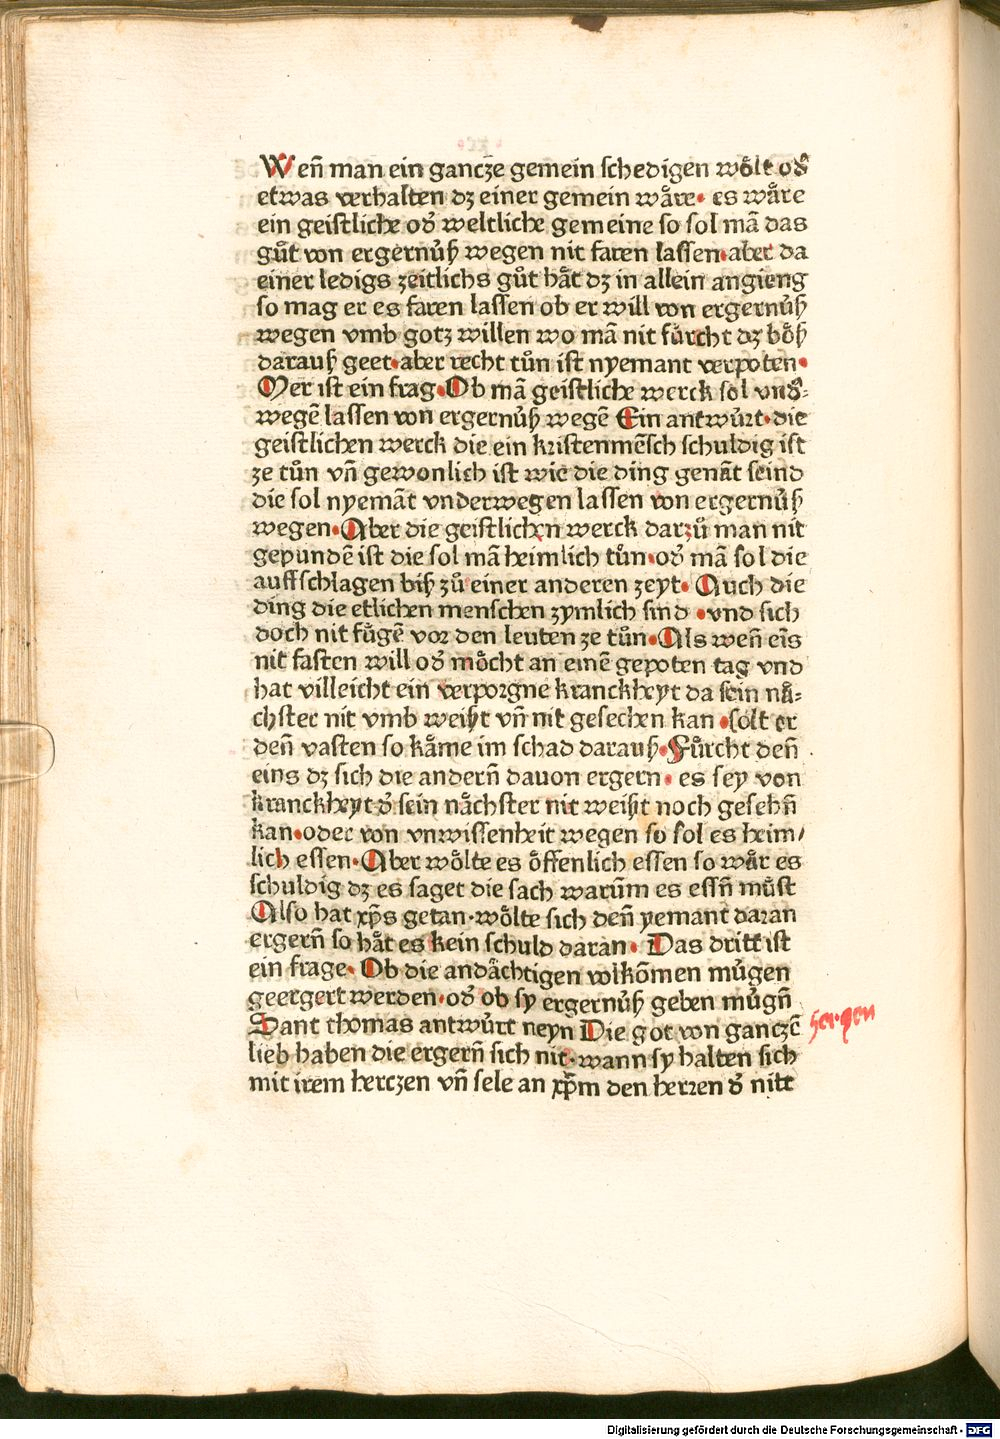 Weñ man ein gancze gemein schedigen woͤlt od᷑
etwas verhalten dz einer gemein waͤre· es waͤre
ein geistliche od᷑ weltliche gemeine so sol mā das
guͦt von ergernuͦß wegen nit faren lassen·aber da
einer ledigs zeitlichs guͦt haͤt dz in allein angieng
so mag er es faren lassen ob er will von ergernuͦß
wegen vmb gotz willen wo mā nit fuͤrcht dz boͤß
darauß geet·aber recht tuͦn ist nyemant verpoten·
Mer ist ein frag·Ob mā geistliche werck sol vnd᷑⸗
wegē lassen von ergernuͦß wegē Ein antwuͦrt·die
geistlichen werck die ein kristenmēsch schuldig ist
ze tuͦn vñ gewonlich ist wie die ding genāt seind
die sol nyemāt vnderwegen lassen von ergernuͦß
wegen·Aber die geistlichen werck darzuͦ man nit
gepundē ist die sol mā heimlich tuͦn·od᷑ mā sol die
auffschlagen biß zuͦ einer anderen zeyt· Auch die
ding die etlichen menschen zymlich sind ·vnd sich
doch nit fuͤgē vor den leuten ze tuͦn·Als weñ eīs
nit fasten will od᷑ moͤcht an einē gepoten tag vnd
hat villeicht ein verporgne kranckheyt da sein naͤ⸗
chster nit vmb weißt vñ nit gesechen kan ·solt er
deñ vasten so kaͤme im schad darauß·Fuͤrcht deñ
eins dz sich die anderñ dauon ergern· es sey von
kranckheyt d᷑ sein naͤchster nit weißt noch gesehñ
kan·oder von vnwissenheit wegen so sol es heim/
lich essen·Aber woͤlte es oͤffenlich essen so waͤr es
schuldig dz es saget die sach warūm es essñ muͤst
Also hat xp̄s getan·woͤlte sich deñ yemant daran
ergerñ so haͤt es kein schuld daran· Das dritt ist
ein frage· Ob die andaͤchtigen volkōmen muͤgen
geergert werden·od᷑ ob sy ergernuͦß geben muͤgñ
Sant thomas antwuͦrt neyn Die got von ganczē
lieb haben die ergerñ sich nit·wann sy halten sich
mit irem herczen vñ sele an xp̄m den herren d᷑ nitt
Digitalisierung gefördert durch die Deutsche Forschungsgemeinschaft - DFG